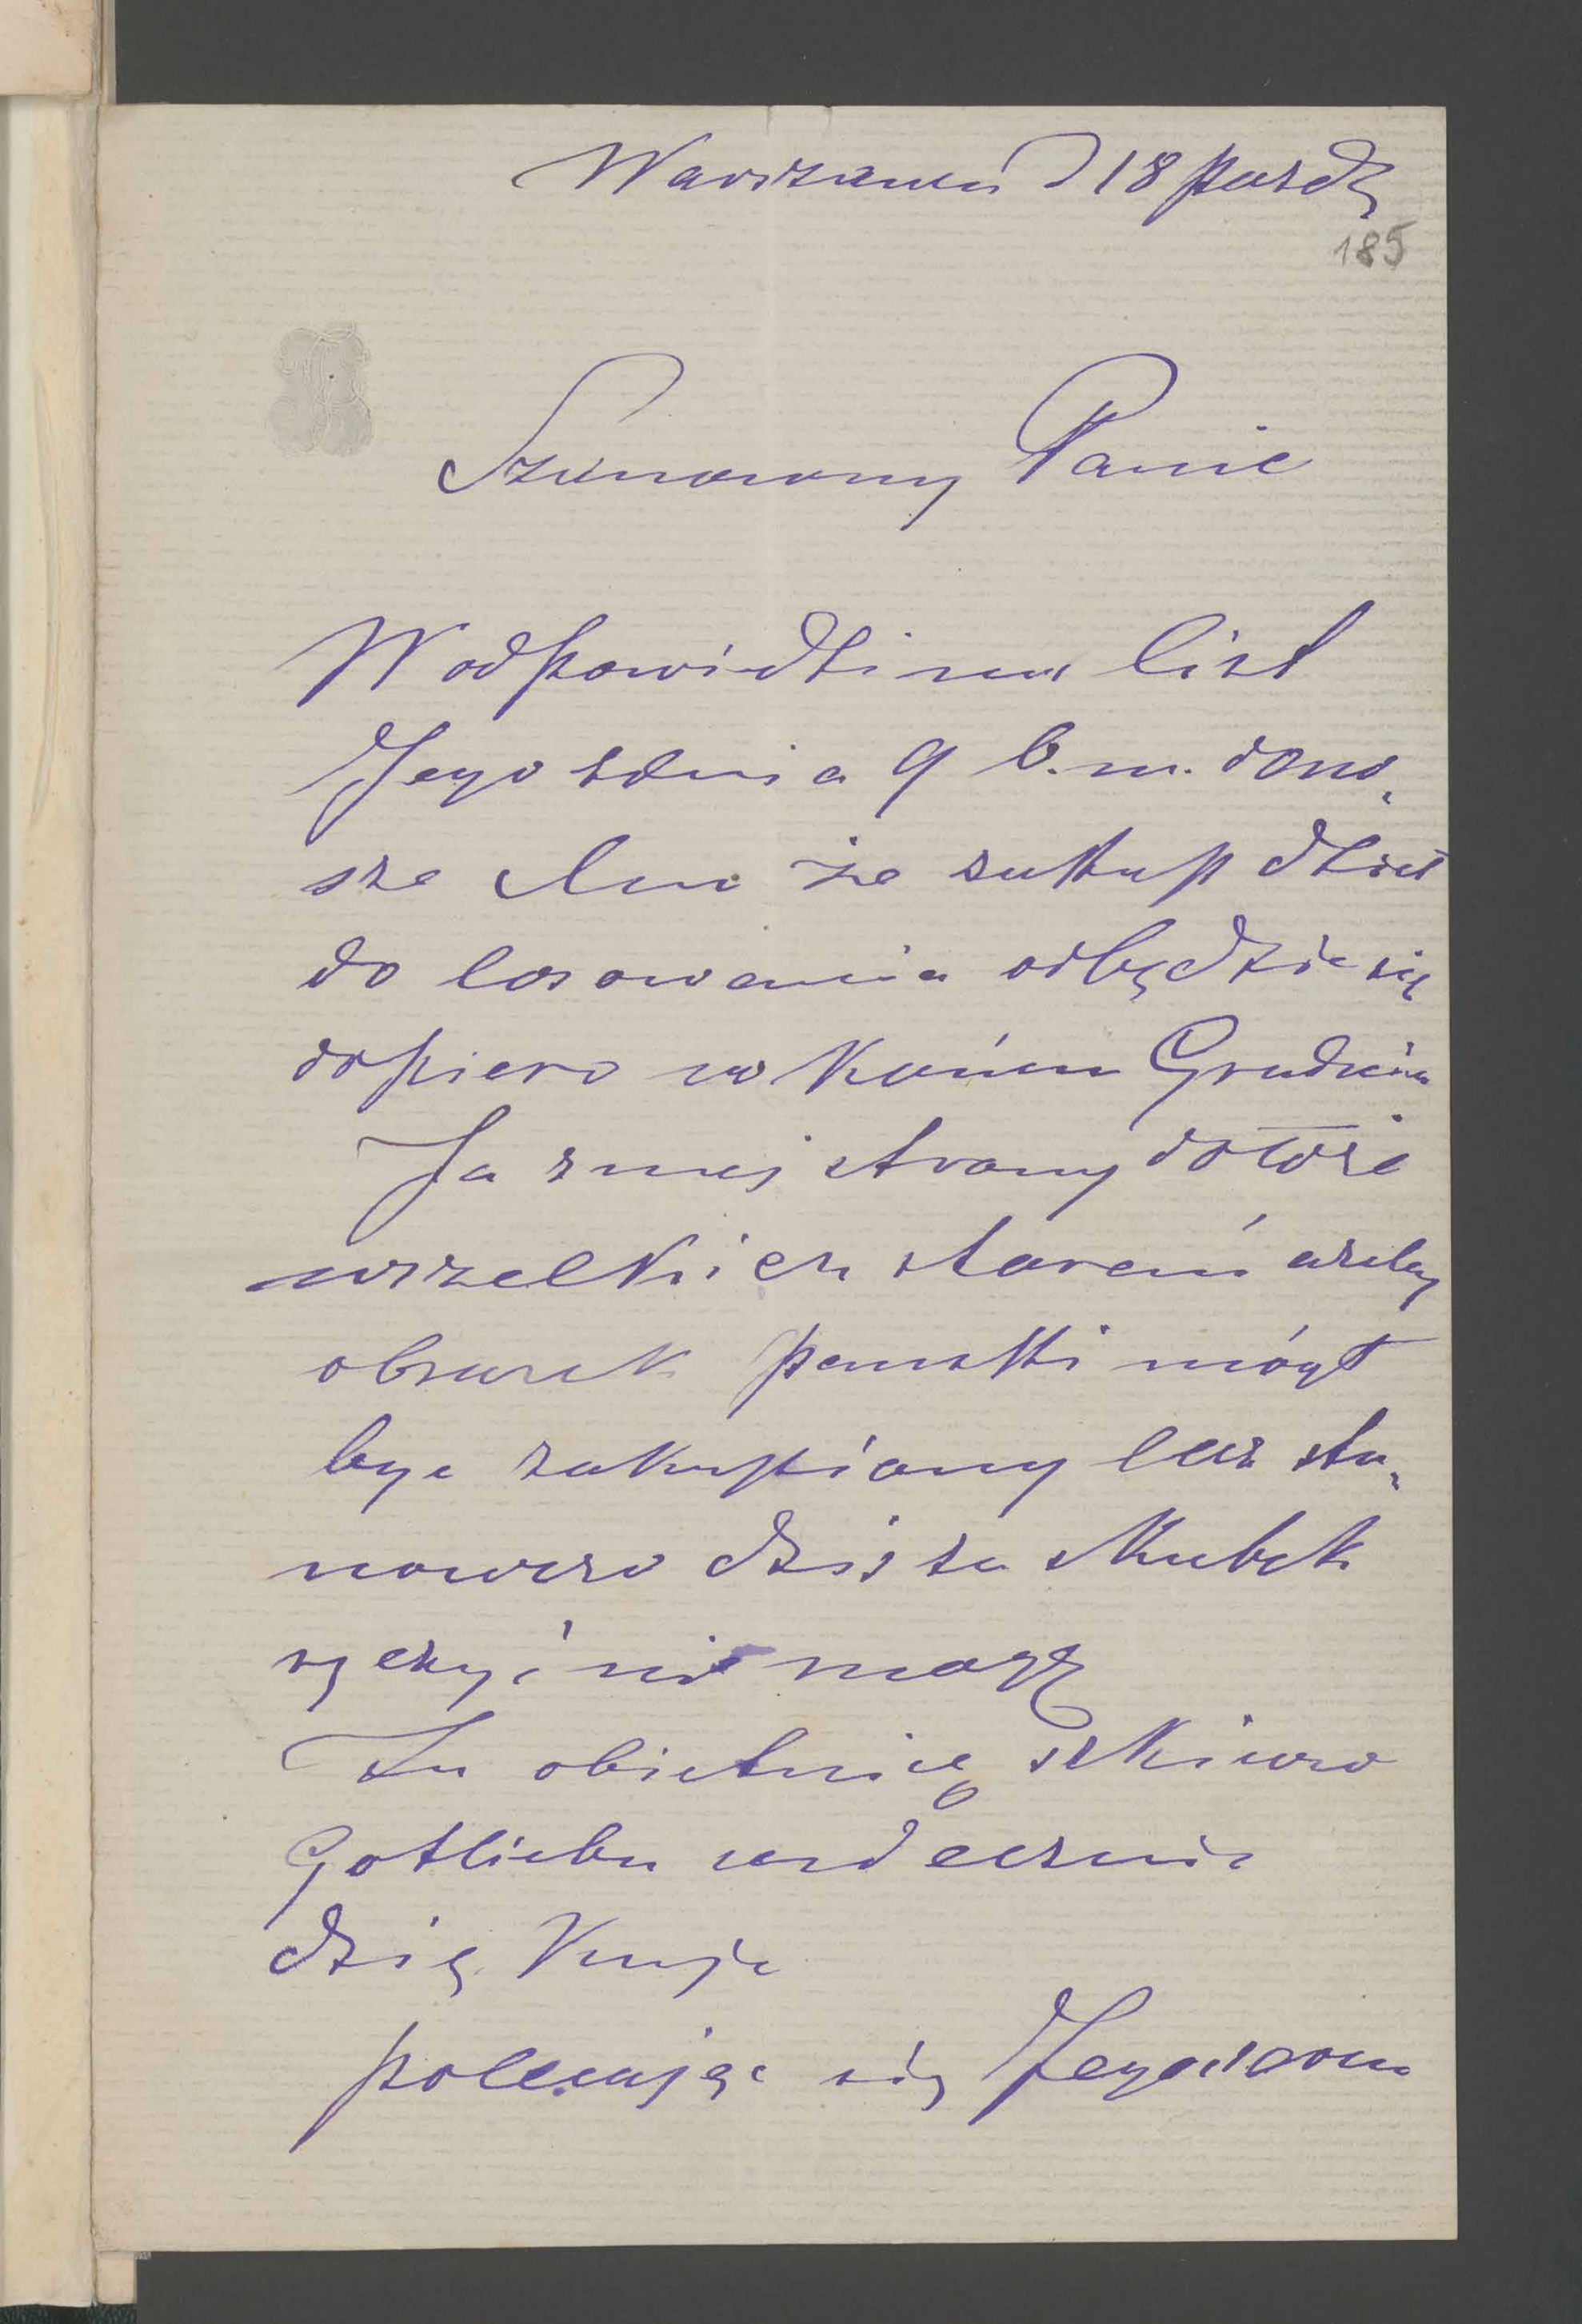 Warszawa d 18 Paźdz
185
Szanowny Panie
W odpowiedzi na list
Jego z dnia 9 b. m. dono„
szę Mu że zakup dzieł
do losowania odbędzie się
dopiero w Końcu Grudnia
Ja z mej strony dołożę
wszelkich starań ażeby
obrazek pański mógł
być zakupiony lecz sta„
nowczo dziś za skutek
ręczyć nie mogę
Za obietnicę szkiców
Gotlieba serdecznie
dziękuję
polecając się Jego